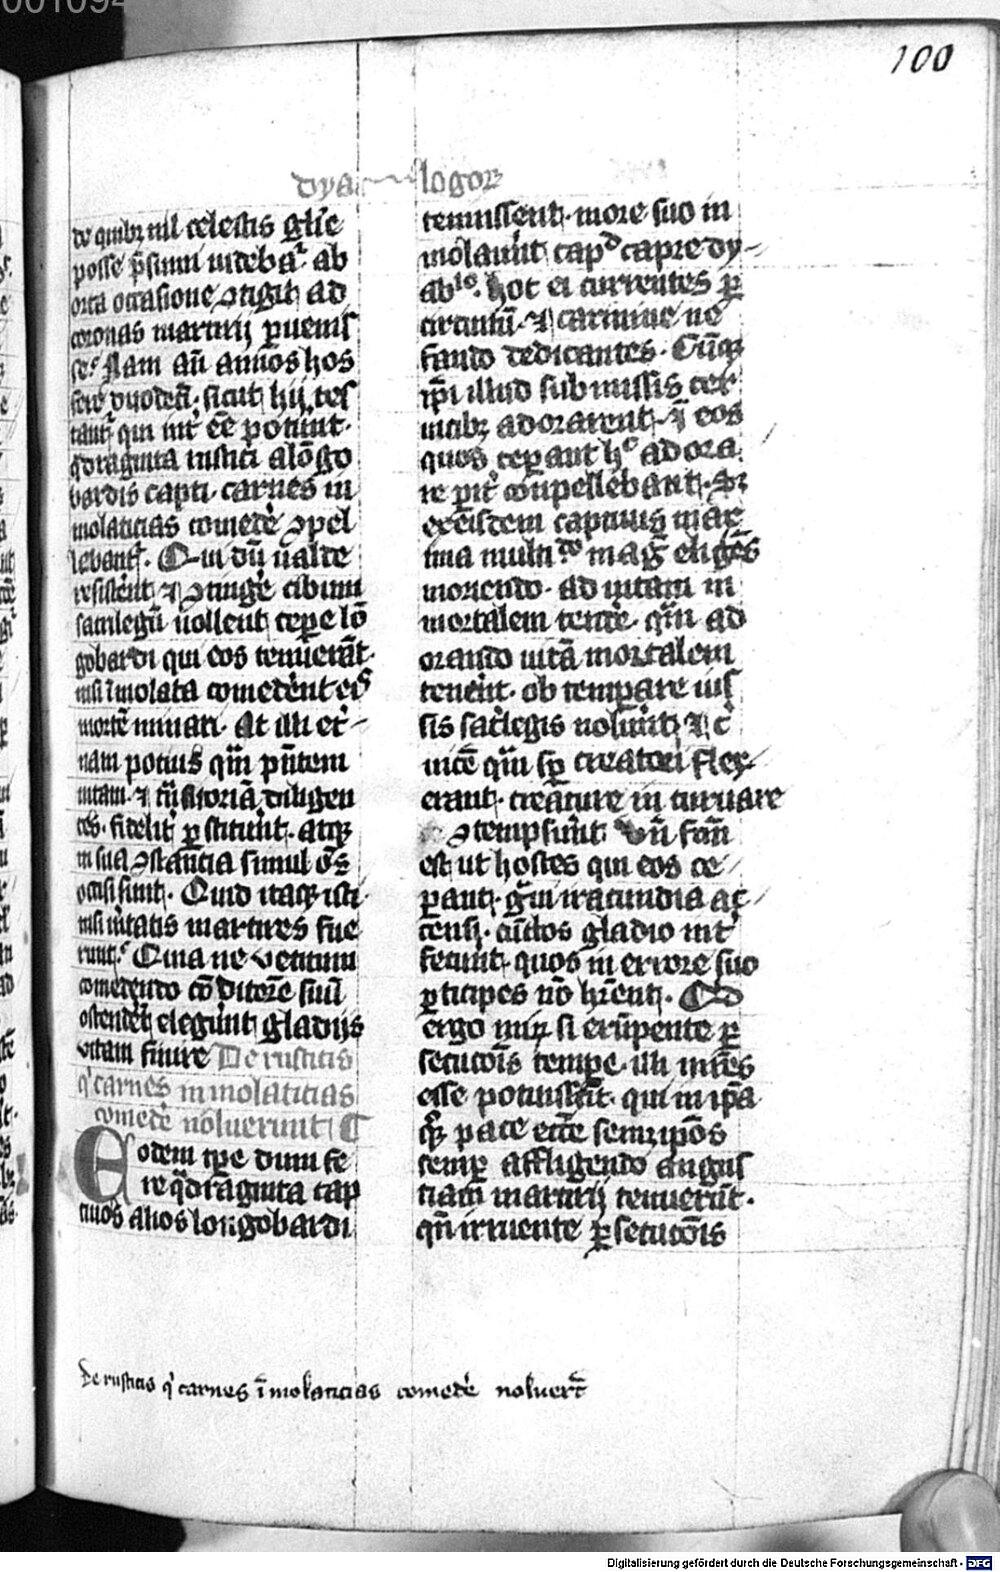 100
dya logoꝝ
de quibꝫ nil celestis gl̄ie
posse p̄sumi videbat᷑ ab
orta occasione ꝯtigit ad
coronas martirij ꝑuenis
se. Nam an̄ annos hos
fere duodecī. sicut hij tes
tant᷑ qui int̓ eē potuīt.
q̓draginta rustici a lōgo
bardis capti. carnes im
molaticias comedē ꝯpel
lebant᷑. Qui dū valde
resistēnt ⁊ ꝯtinge᷑ cibum
sacrilegū nollent cepe᷑ lō
gobardi qui eos tenuerāt.
nisi īmolata comedēnt eis
mortē minari. At illi et᷑
nam potius q̄m p̄ntem
vitam ⁊ t̄nsitoriā diligen
tes. fidelit̓ ꝑstitūnt. atqꝫ
in sua ꝯstancia simul ōs
occisi sunt. Quid itaqꝫ isti
nisi v̓itatis martires fue
runt. Qui ne vetitum
comedendo cōditorē suū
offendēnt elegūnt gladijs
vitam finire De rusticis
q̓ carnes inmolaticias
comedē noluerunt
Eodem tꝑe dum fe
re q̓draginta cap
tiuos alios longobardi
tenuissent. more suo im
molauūt capᵈ capre dy
abˡᵒ. hoc ei currentes ꝑ
circuitū. ⁊ carmine ne
fando dedicantes. Cūqꝫ
ip̄i illud submissis cer
uicibꝫ adorarent. ⁊ eos
quos ceꝑant hᶜ adora
re pit̓ conpellebant. Sꝫ
ex eisdem captiuis max
ima multitᵈᵒ mag̃ eligēs
moriendo. ad vitam in
mortalem tende᷑. q̄m ad
orando vitā mortalem
tenēnt. obtemꝑare ius
sis sac̓legis nolūnt. ⁊ c̓
uicē q̄m sꝑ creatori flex
erant. creature incuruare
ꝯtempsūnt. Vn̄ fcm̄
est ut hostes qui eos ce
ꝑant. g̓ui iracundia ac
censi. cūctos gladio int̓
fecūnt. quos in errore suo
ꝑticipes nō hr̄ent. Qd
ergo mirꝫ si erūpente ꝑ
secucōis tempe᷑. illi mr̄es
esse potuissēt. qui in ip̄a
qꝫ pace eccē semꝫipōs
semꝑ affligendo angus
tiam martirij tenuerūt.
qn̄ irruente ꝑsecucōis
De rusticis q̓ carnes īmolaticias comedē noluert̄
Digitalisierung gefördert durch die Deutsche Forschungsgemeinschaft - DFG